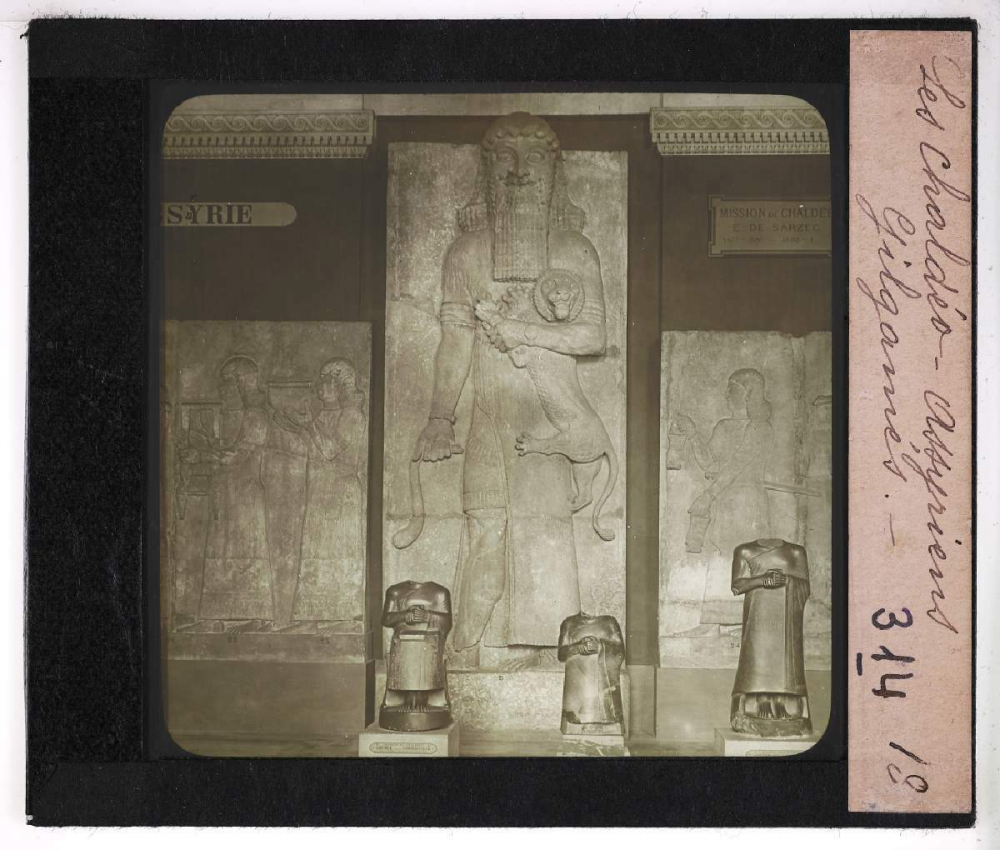 SYRIE
MISSION DE CHALDÉE
E. DE SARZEC
Les Chaldéo-Assyriens
Gilgamès. -
314 18